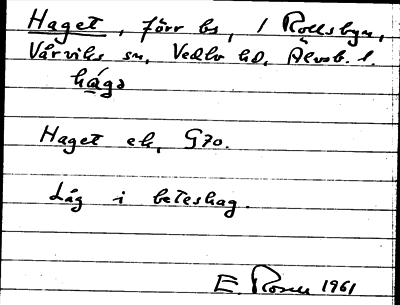 Haget, förr bs, / Rollsbyn,
Vårviks sn, Vedbo hd, Älvsb. l.
hágə
Haget ek, G70.
Låg i beteshag.
E. Rosén 1961